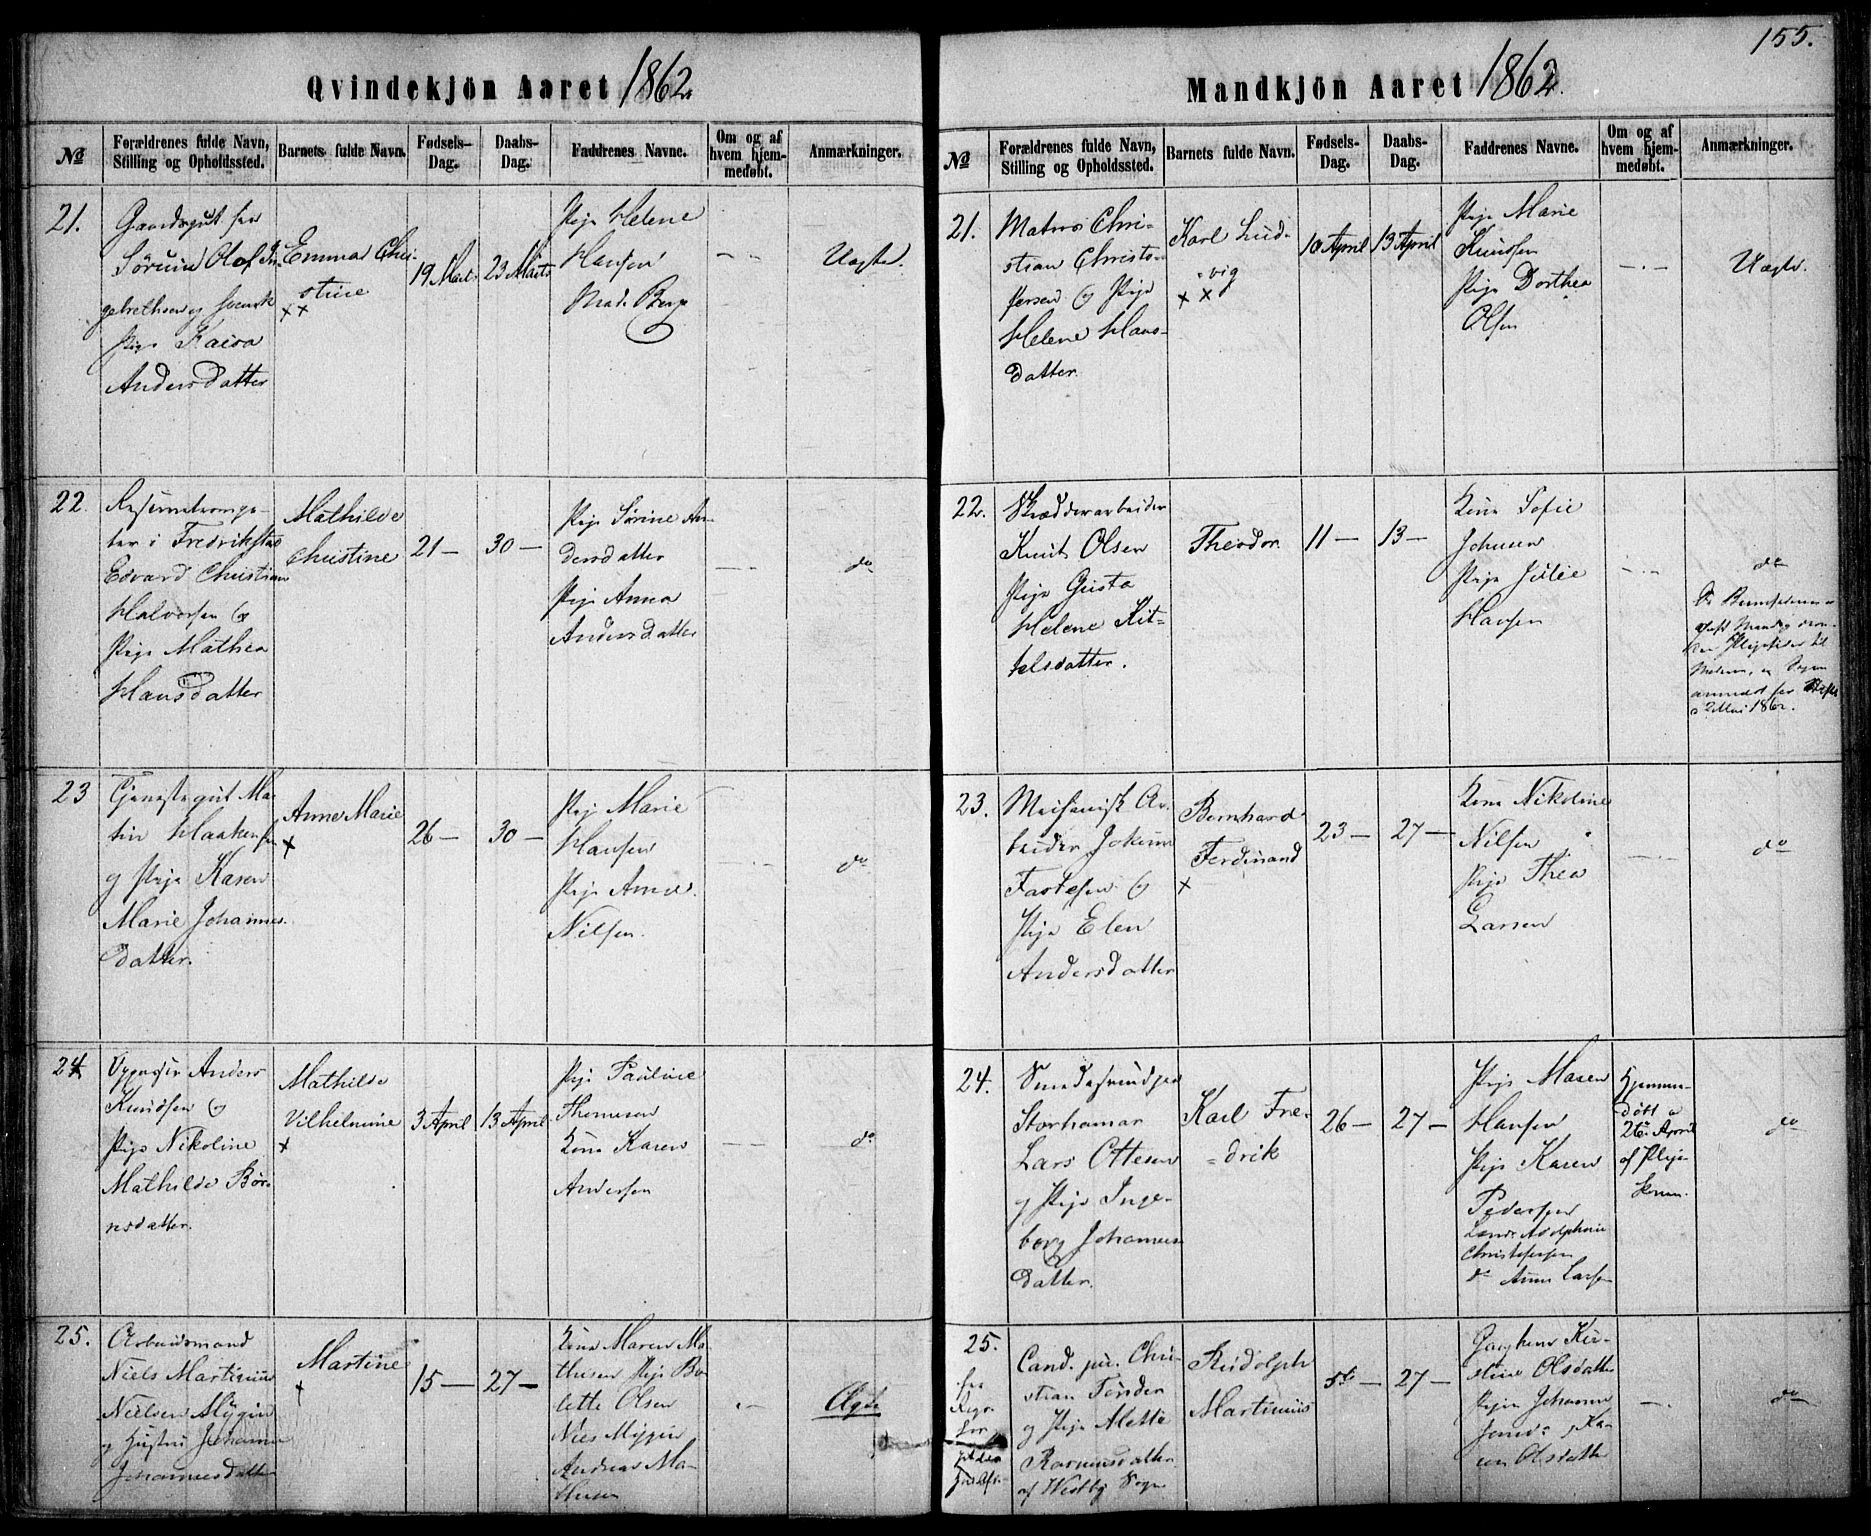 155.
Qvindekjön Aaret 1862.
№
Forældrenes fulde Navn, Stilling og Opholdssted.
Barnets fulde Navn.
Fødsels-Dag.
Daabs-Dag.
Faddrenes Navne.
Om og af hvem hjem-medøbt.
Anmærkninger.
21.
Gaardsgut fra
Sørum Olof In-
gebrethsen og svensk
Pige Kaisa
Andersdatter
Emma Chri-
stine
× ×
19 Marts
23 Marts
Pige Helene
Hansen
Mad. Berg
— " —
Uægte.
22.
ter i Fredrikstad
Edvard Christian
Halvorsen og
Pige Mathea
Hansdatter
Mathilde
Christine
21 —
30 —
Pige Sørine An-
dersdatter
Pige Anna
Andersdatter
— " —
do
23
Tjenestegut Mar-
tin Haakensen
og Pige Karen
Marie Johannes-
datter.
Anne Marie
×
26 —
30 —
Pige Marie
Hansen
Pige Anne
Nilsen.
— " —
do
24
Anders
Knudsen og
Pige Nikoline
Mathilde Bør-
nsdatter.
Mathilde
Vilhelmine
×
3 April
13 April
Pige Pauline
Thomesen
Kone Karen
Andersen
— " —
do
25.
Arbeidsmand
Niels Martinius
Nielsen Mygin
og Hustru Johanne
Johannesdatter
Martine
×
15 —
27 —
Kone Maren Ma-
thesen Pige Bo-
lette Olsen
Niels Mygin
Andreas Ma-
thesen
" —
Ægte
Mandkjön Aaret 1862.
№
Forældrenes fulde Navn, Stilling og Opholdssted.
Barnets fulde Navn.
Fødsels-Dag.
Daabs-Dag.
Faddrenes Navne.
Om og af hvem hjem-medøbt.
Anmærkninger.
21.
Matros Chri-
stian Christo-
fersen og Pige
Helene Hans-
datter.
Karl Lud-
vig
× ×
10 April
13 April
Pige Marie
Knudsen
Pige Dorthea
Olsen
— " —
Uægte.
22.
Skrædderarbeider
Knut Olsen
Pige Gusta
Helene Kit-
telsdatter.
Theodor
11 —
13 —
Kone Sofie
Johnsen
Pige Julie
Hansen
— " —
do
2 Mai 1862.
23.
Mechanisk Ar-
beider Jokum
og
Pige Elen
Andersdatter
Bernhard
Ferdinand
×
23 —
27 —
Kone Nikoline
Nilsen
Pige Thea
Larsen
— " —
do
24.
Smedesvend paa
Storhamar
Lars Ottesen
og Pige Inge-
borg Johannes-
datter.
Karl Fre-
drik
26 —
27 —
Pige Maren
Hansen
Pige Karen
Pedersen
Adolphine
Christophersen
do Anne Larsen
Hjemme-
døbt
26. April
af Pleje-
konen.
do
25.
fra
Cand. jur. Chri-
stian Tønder
og Pige Alette
Rasmusdatter
af Westby Sogn
Rudolph
Martinius
27 —
Kir-
stine Olsdatter
Pige Johanne
Jons- , Ka-
ren Olsdatter
— .
do